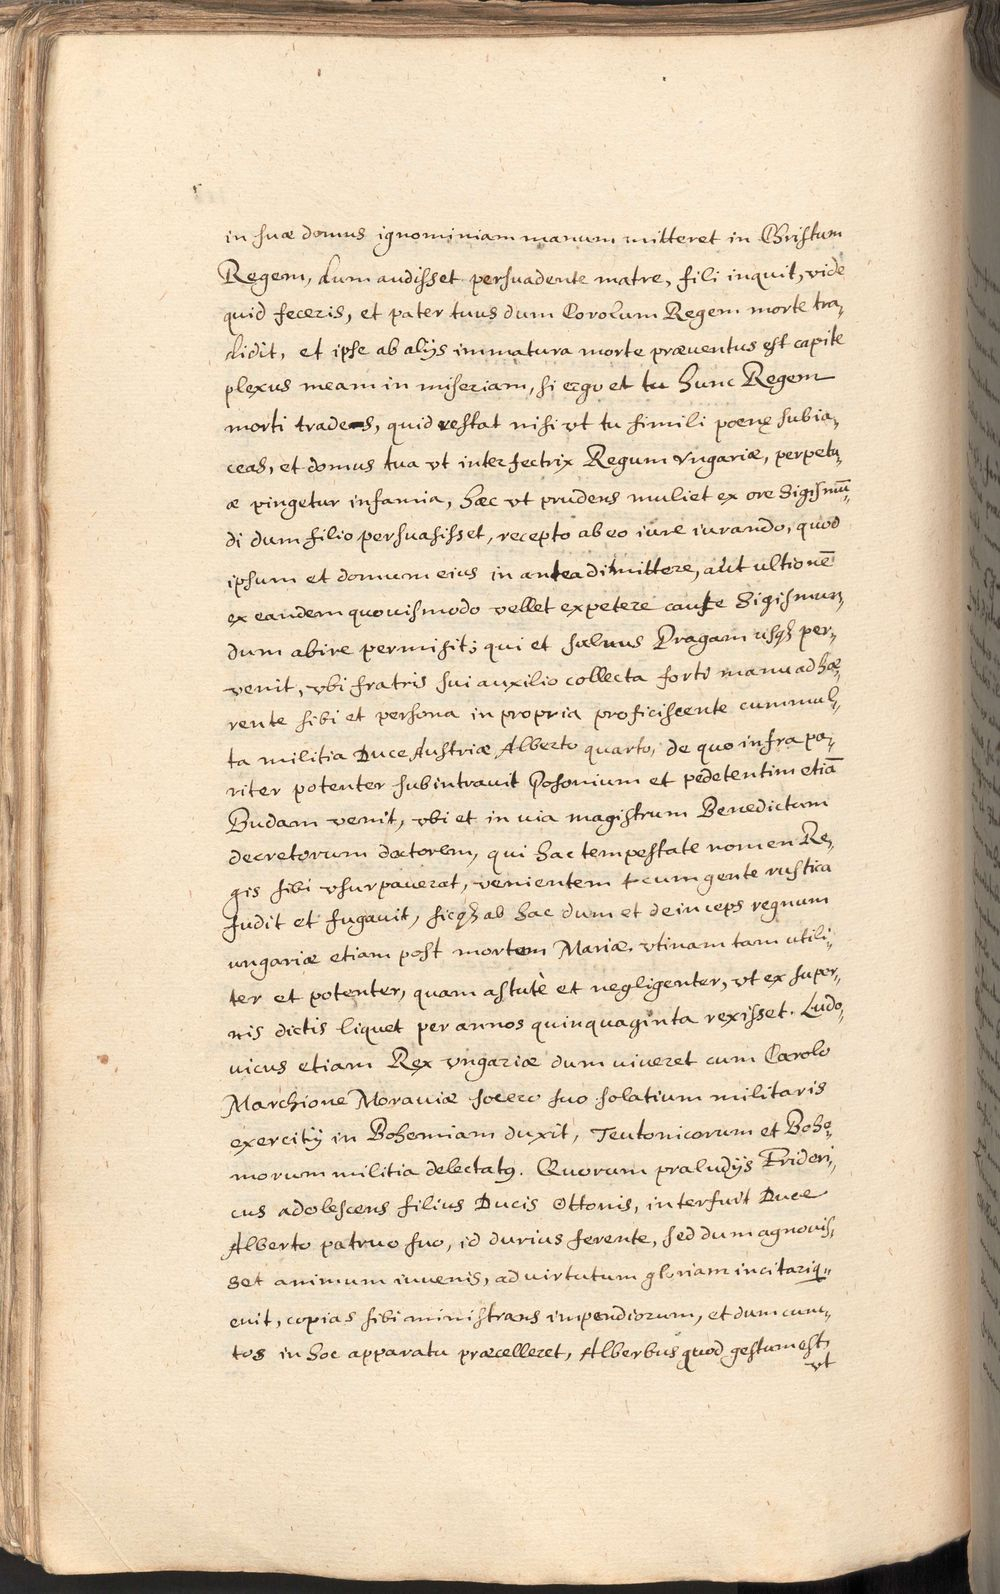 in suæ domus ignominiam manum mitteret in Christum
Regem, dum audisset persuadente matre, fili inquit, vide
quid feceris, et pater tuus dum Corolum Regem morte tra„
didit, et ipse ab alijs immatura morte præuentus est capite
plexus meam in miseriam, si ergo et tu hunc Regem
morti trades, quid restat nisi vt tu simili poenę subia„
ceas, et domus tua vt interfectrix Regum vngariæ, perpetu„
æ pingetur infamia, hæc vt prudens muliet ex ore Sigismū„
di dum filio persuasisset, recepto ab eo iure iurando, quod
ipsum et domum eius in antea dimittere, aut ultionē
ex eandem quouismodo vellet expetere caute Sigismun„
dum abire permisit; qui et saluus Pragam usqꝫ per„
venit, vbi fratris sui auxilio collecta forti manu adhæ„
rente sibi et persona in propria proficiscente cum mul„
ta militia Duce Austriæ Alberto quarto, de quo infra pa„
riter potenter subintrauit Posonium et pedetentim etiā
Budam venit, vbi et in uia magistrum Benedictum
decretorum doctorem, qui hac tempestate nomen Re„
gis sibi vsurpauerat, venientem cum gente rustica
fudit et fugauit, sicqꝫ ab hac dum et deinceps regnum
ungariæ etiam post mortem Mariæ. vtinam tam utili„
ter et potenter, quam astutè et negligenter, vt ex super„
nis dictis liquet per annos quinquaginta rexisset. Ludo„
uicus etiam Rex vngariæ dum uiueret cum Carolo
Marchione Morauiæ socero suo solatium militaris
exercitij in Bohemiam duxit, Teutonicorum et Boho„
morum militia delectatꝰ. Quorum praludijs Frideri„
cus adolescens filius Ducis Ottonis, interfuit Duce
Alberto patruo suo, id durius ferente, sed dum agnouis„
set animum iuuenis, ad uirtutum gloriam incitari q„
euit, copias sibi ministrans impendiorum, et dum cunc„
tos in hoc apparatu præcelleret, Alberbus quod gestum est,
vt